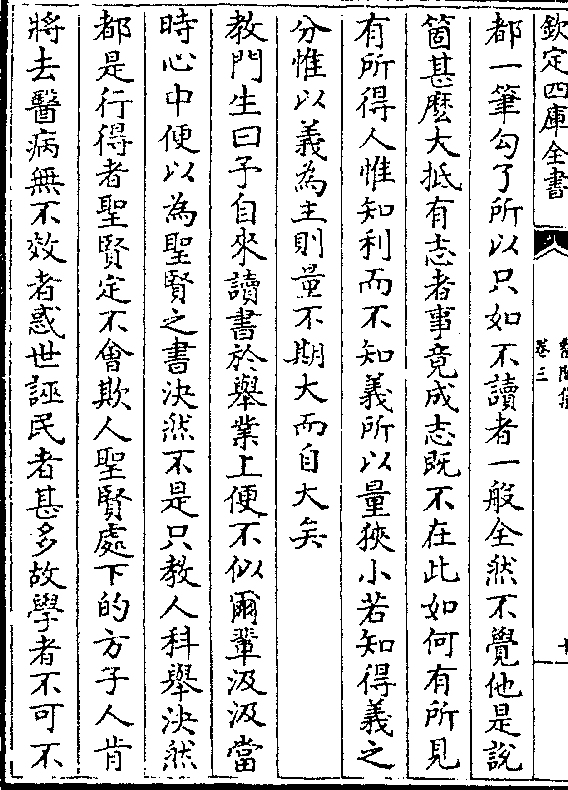 欽定四庫全書
卷三
都一筆勾了所以只如不讀者一般全然不覺他是說
箇甚麽大抵有志者事竟成志既不在此如何有所見
有所得人惟知利而不知義所以量狹小若知得義之
分惟以義為主則量不期大而自大矣
教門生曰予自來讀書於舉業上便不似爾輩汲汲當
時心中便以為聖賢之書決然不是只教人科舉決然
都是行得者聖賢定不會欺人聖賢處下的方子人肯
將去醫病無不效者惑世誣民者甚多故學者不可不